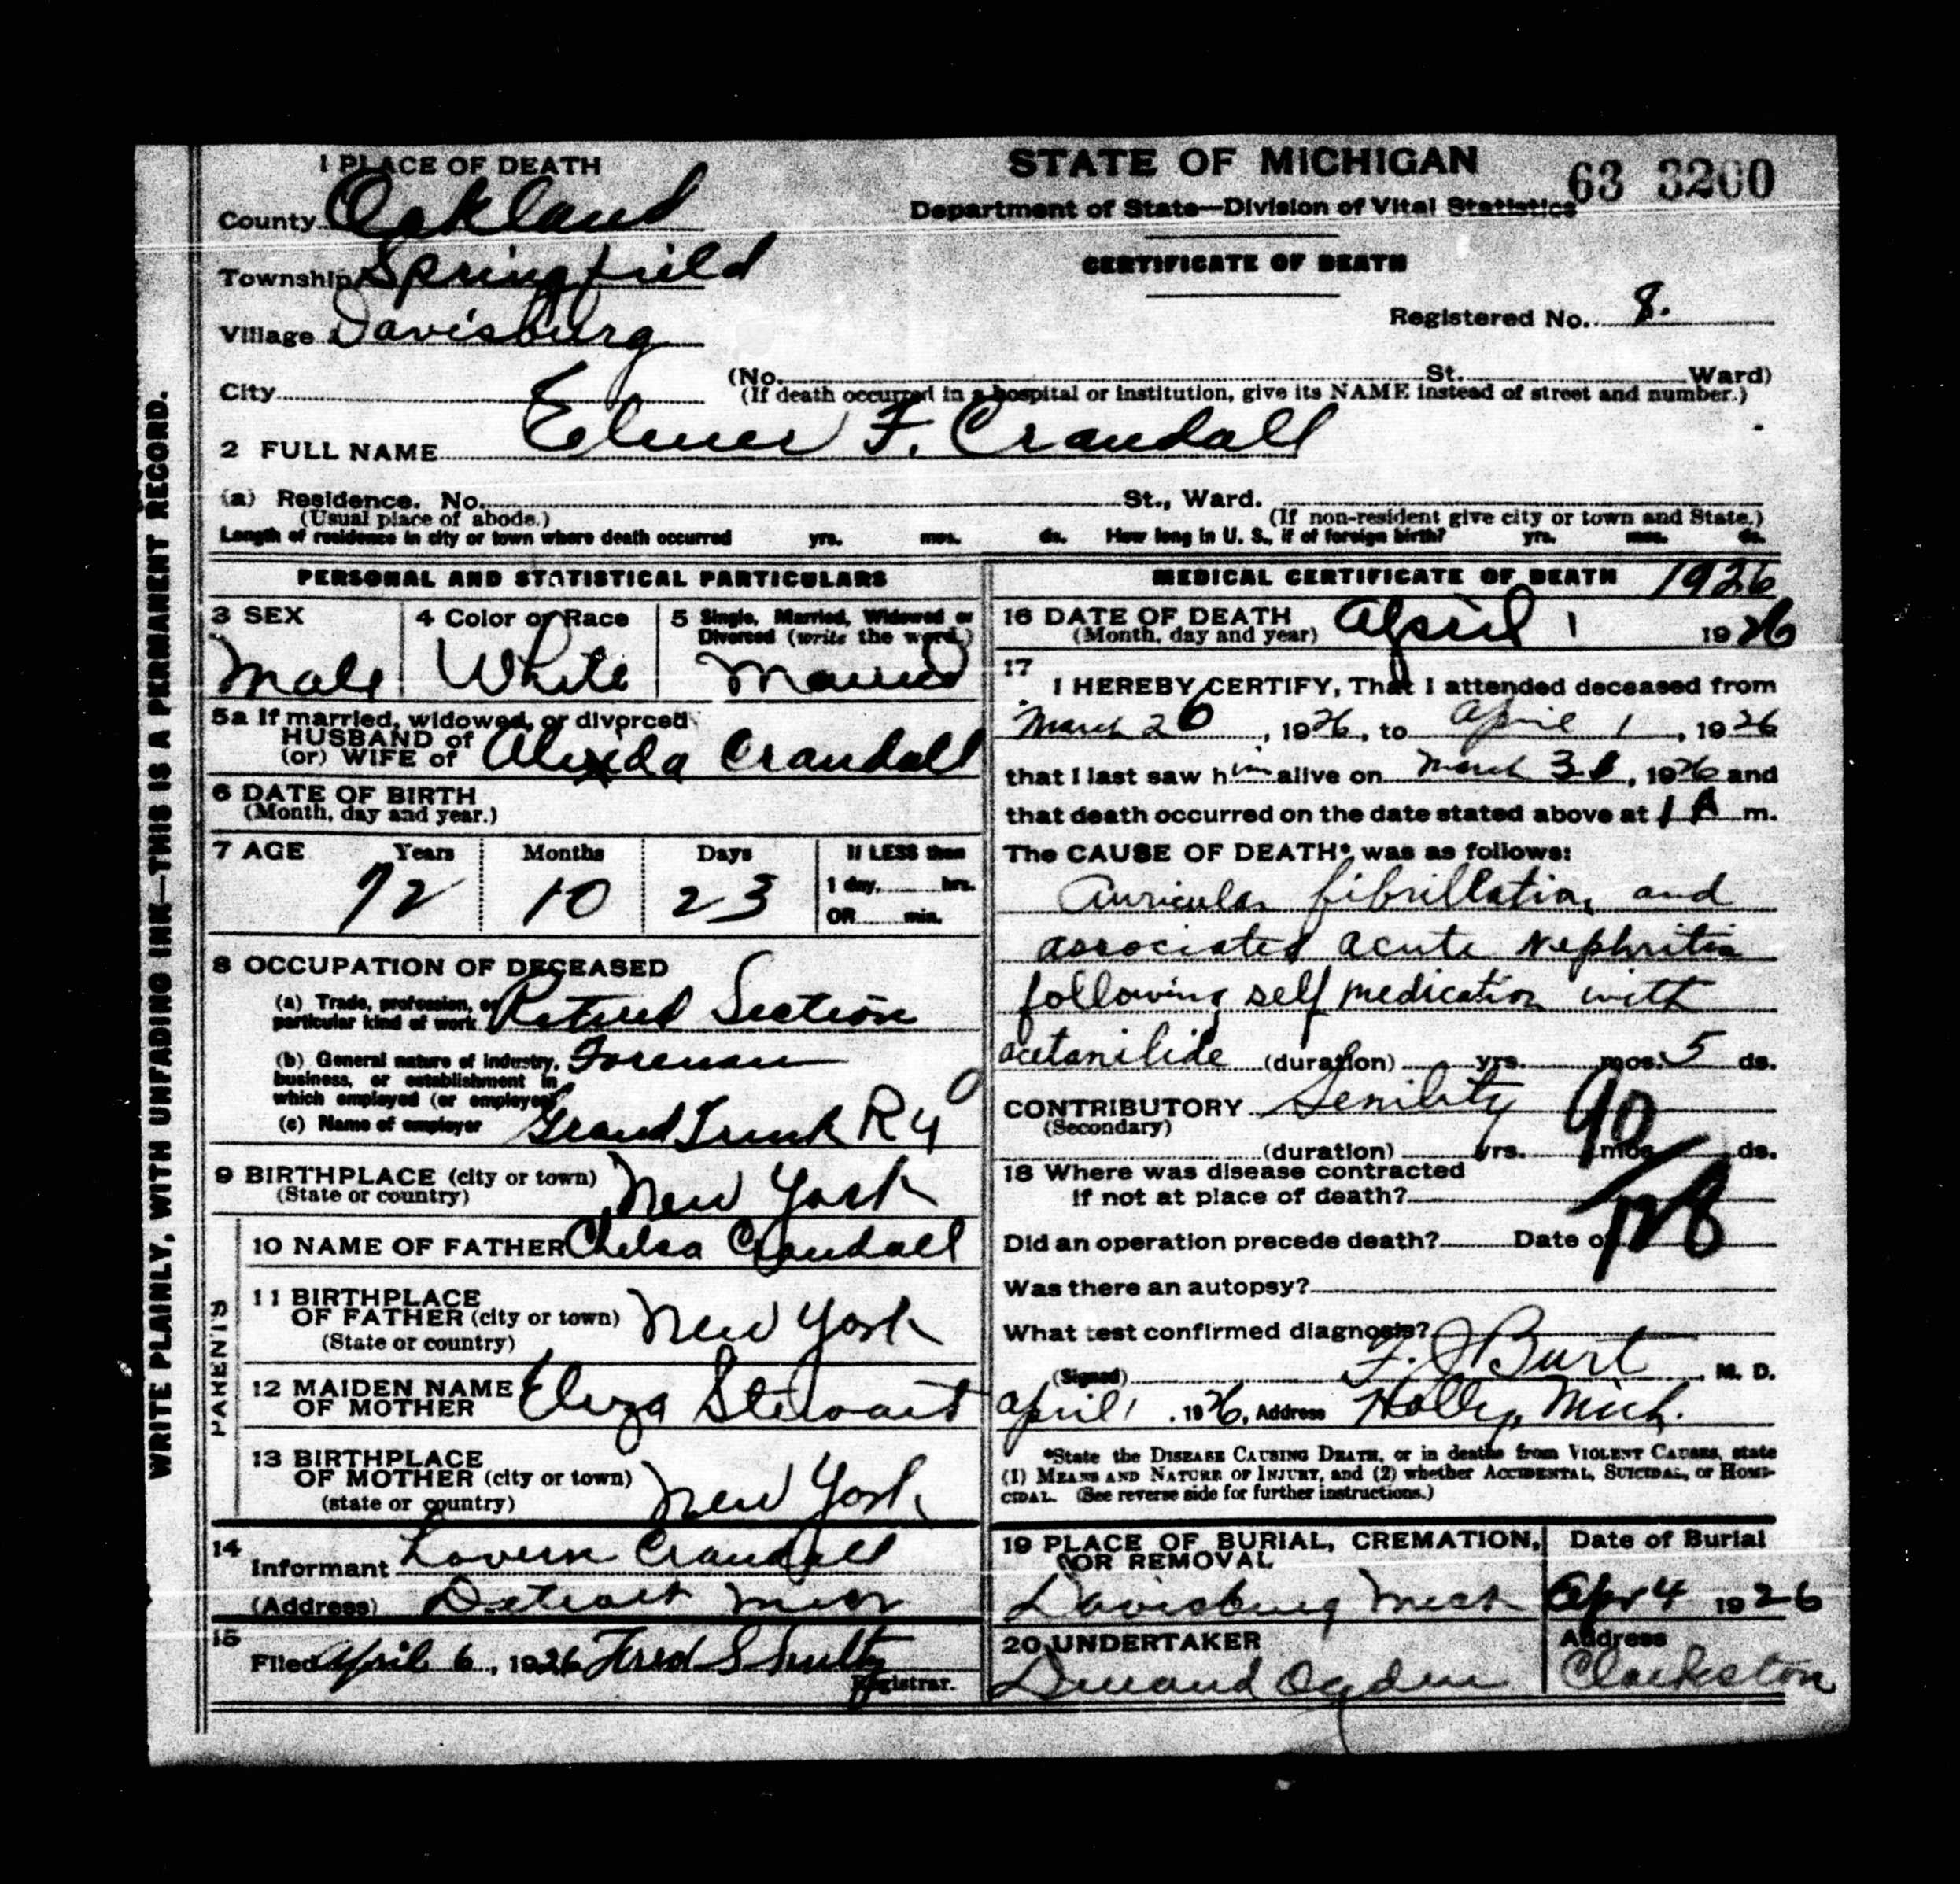 WRITE PLAINLY, WITH UNFADING INK—THIS IS A PERMANENT RECORD.
1 PLACE OF DEATH
County Oakland
Township Springfield
Village Davisburg
City
STATE OF MICHIGAN
63 3200
Department of State—Division of Vital Statistics
CERTIFICATE OF DEATH
Registered No. 8.
(No. St. Ward)
(If death occurred in a hospital or institution, give its NAME instead of street and number.)
2 FULL NAME Elmer F. Crandall
(a) Residence. No. St., Ward.
(Usual place of abode.) (If non-resident give city or town and State.)
Length of residence in city or town where death occurred yrs. mos. ds. How long in U. S., if of foreign birth? yrs. mos. ds.
PERSONAL AND STATISTICAL PARTICULARS
3 SEX
Male
4 Color or Race
White
5 Single, Married, Widowed or
Divorced (write the word.)
Married
5a If married, widowed, or divorced
HUSBAND of
(or) WIFE of Crandall
6 DATE OF BIRTH
(Month, day and year.)
7 AGE Years Months Days If LESS than
1 day, hrs.
72 10 23
OR min.
8 OCCUPATION OF DECEASED
(a) Trade, profession, or
particular kind of work Retired Section
(b) General nature of industry, Foreman
business, or establishment in
which employed (or employer)
(c) Name of employer Grand Trunk Ry
9 BIRTHPLACE (city or town)
(State or country) New York
PARENTS
10 NAME OF FATHER Chelsa Crandall
11 BIRTHPLACE
OF FATHER (city or town) New York
(State or country)
12 MAIDEN NAME
OF MOTHER Eliza Stewart
13 BIRTHPLACE
OF MOTHER (city or town) New York
(state or country)
14
Informant Lavern Crandall
(Address) Detroit Mich
15
Filed April 6, 1926 Fred S
Registrar.
MEDICAL CERTIFICATE OF DEATH 1926
16 DATE OF DEATH
(Month, day and year) April 1 1926
17
I HEREBY CERTIFY, That I attended deceased from
March 26, 1926, to April 1, 1926
that I last saw him alive on March 31, 1926 and
that death occurred on the date stated above at 1 A m.
The CAUSE OF DEATH* was as follows:
Auricular fibrillation and
associated acute nephritis
following self medication with
acetanilide (duration) yrs. mos. 5 ds.
CONTRIBUTORY Senility 90
(Secondary)
(duration) yrs. mos. ds.
18 Where was disease contracted
if not at place of death?
128
Did an operation precede death? Date of
Was there an autopsy?
What test confirmed diagnosis?
(Signed) F. J Burt M. D.
April 1, 1926, Address Holly, Mich.
*State the DISEASE CAUSING DEATH, or in deaths from VIOLENT CAUSES, state
(1) MEANS AND NATURE OF INJURY, and (2) whether ACCIDENTAL, SUICIDAL, or HOMI-
CIDAL. (See reverse side for further instructions.)
19 PLACE OF BURIAL, CREMATION,
OR REMOVAL
Davisburg Mich
Date of Burial
Apr 4 1926
20 UNDERTAKER
Ogden
Address
Clarkston